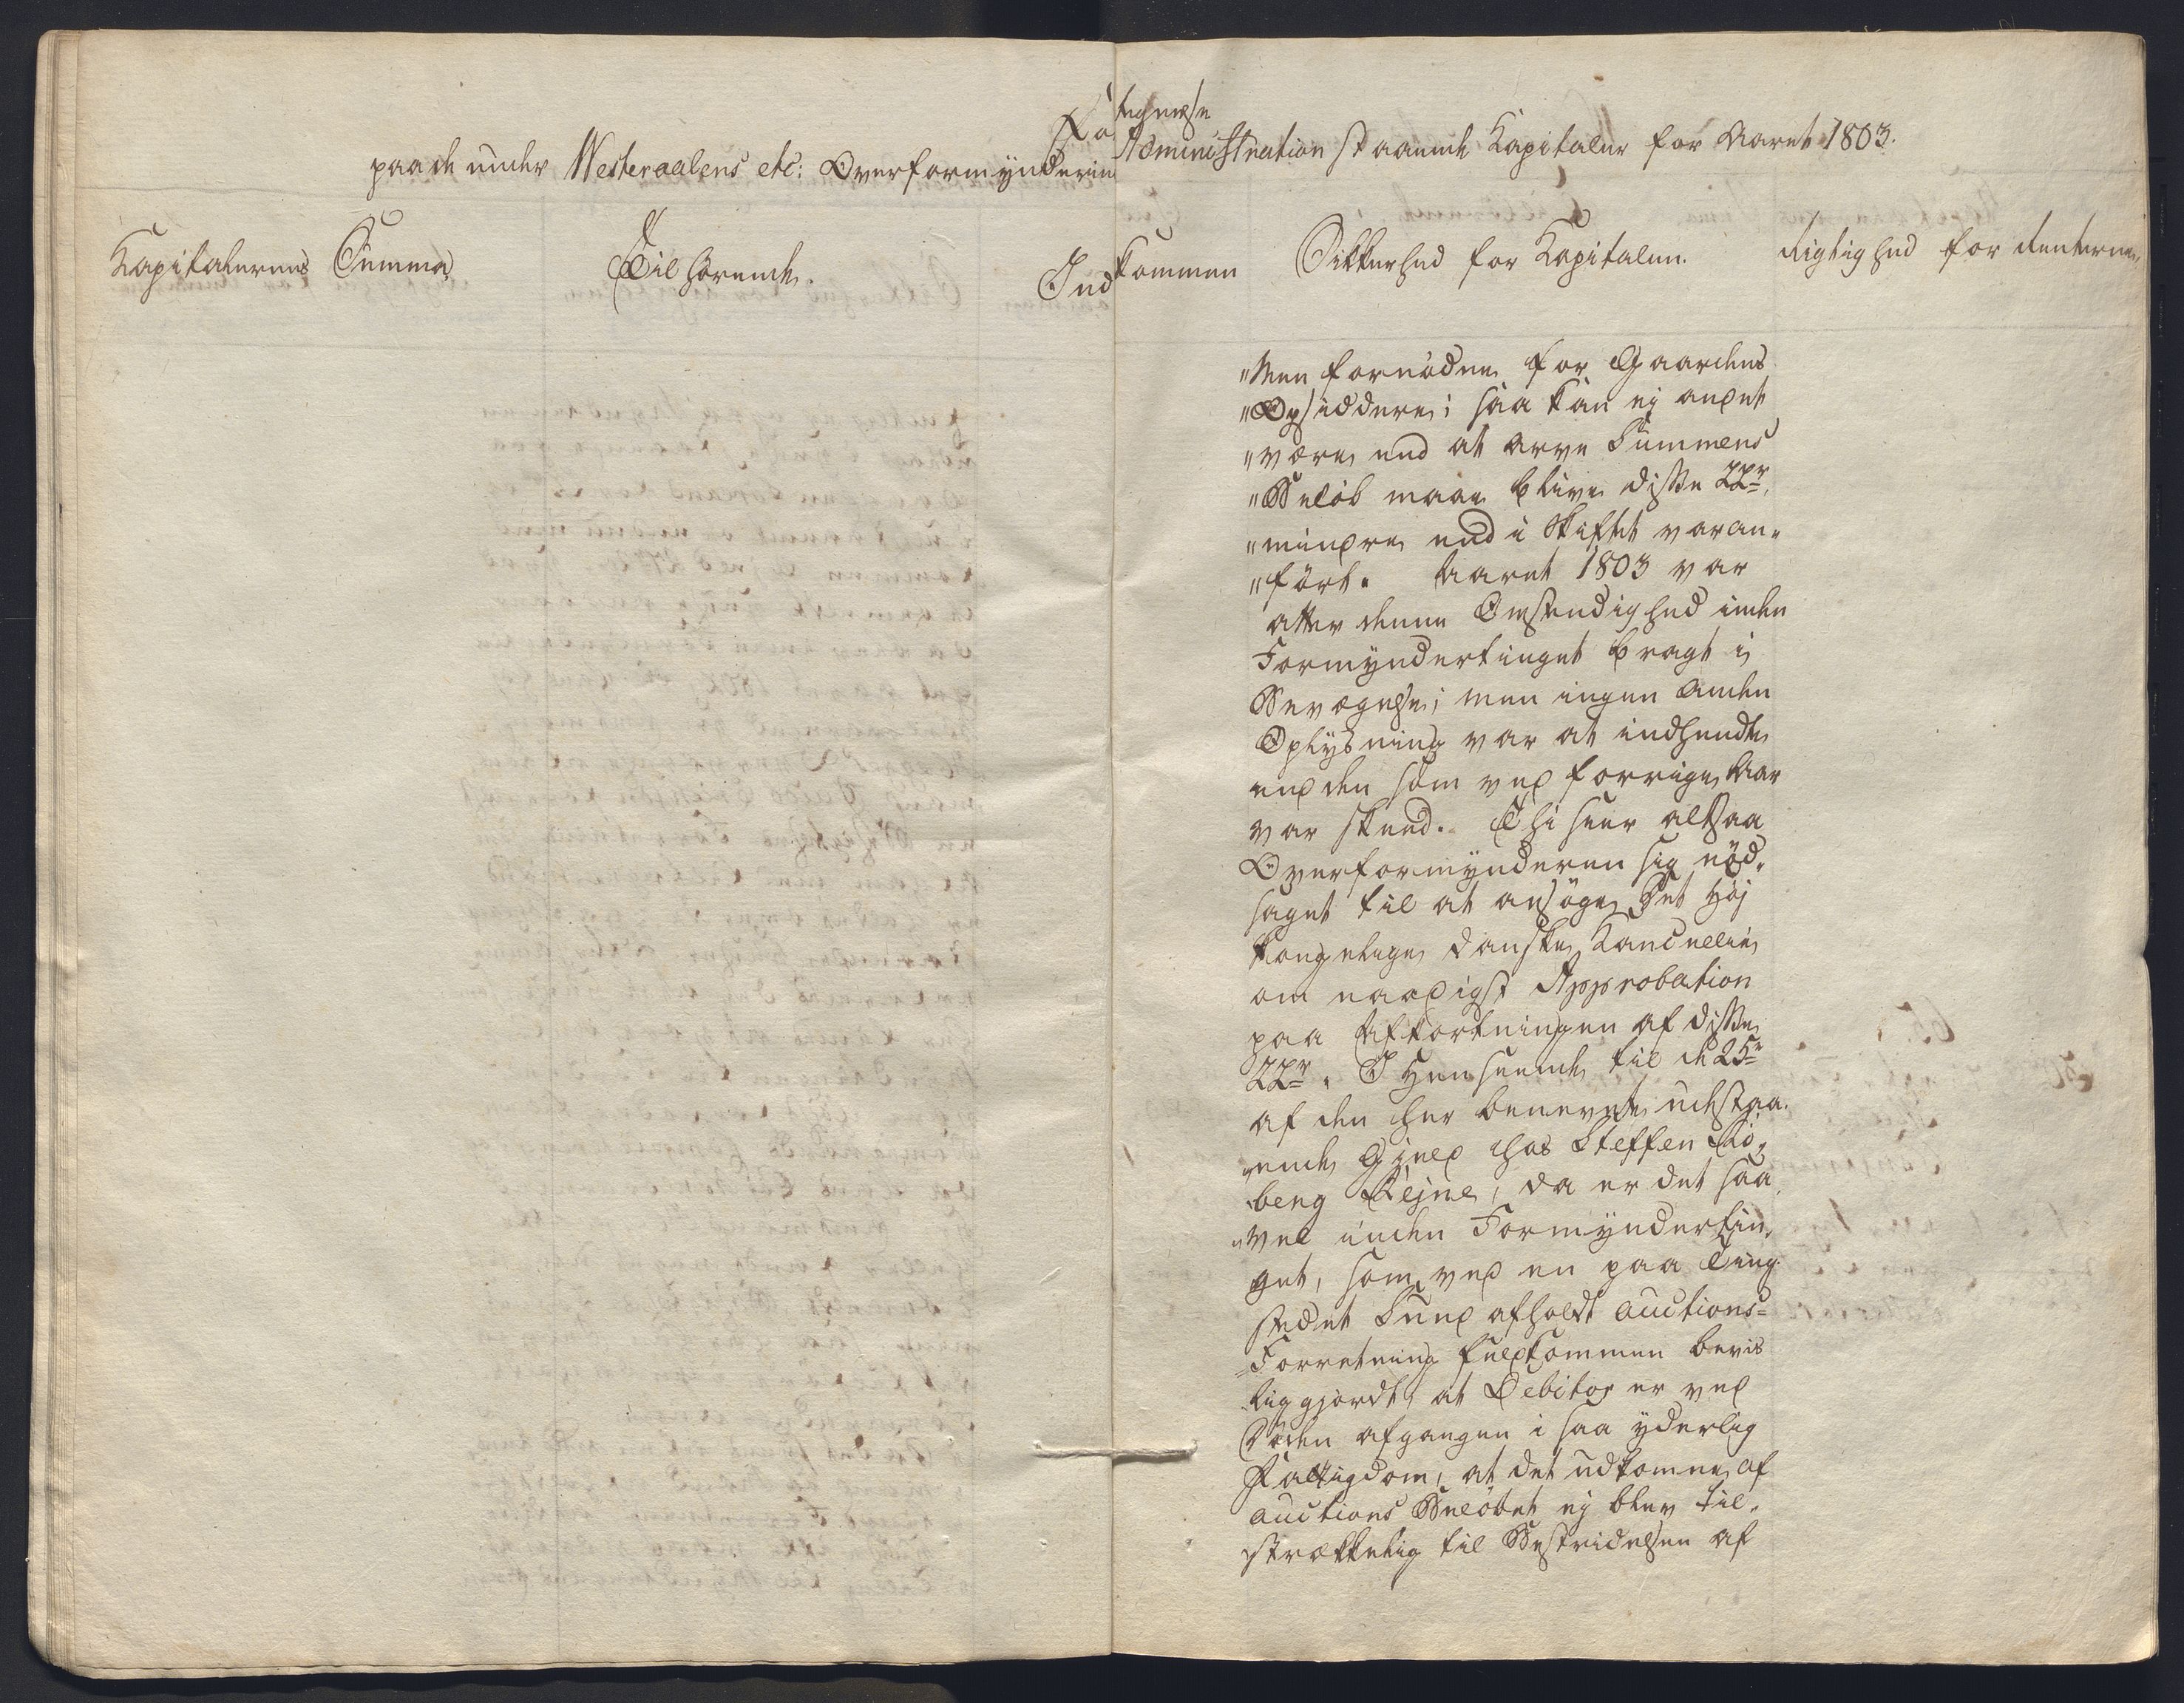 Fortegnelse
paa de under Westeraalens etc: Overformynderiets Administration staaende Kapitaler for Aaret 1803.
Kapitalernes Summa
Tilhörende.
Indkommen
Sikkerhed for Kapitalen.
Rigtighed for Renterne
"Men fornöden for Gaardens
"Opsiddere; saa kan ej andet
"være end at Arve Summens
"Belöb maae blive disse 22r
"mindre end i Skiftet var an„
"fört. Aaret 1803 var
atter denne Omstendighed inden
Formyndertinget bragt i
Bevægelse; men ingen anden
Oplysning var at indhendte
end den som ved forrige Aar
var skeed. Thi seer altsaa
Overformynderen sig nöd„
saget til at ansöge Det Höj
kongelige danske Kancellie
om naadigst Approbation
paa Afkortningen af disse
22r. I Henseende til de 25r
af den her benevnte udestaa„
ende Gjeld hos Steffen
berg Rejne, da er det saa
„vel inden Formyndertin„
get, som ved en paa Ting
stedet Sund afholdt Auctions=
=Forretning fuldkommen bevis
liggjordt, at Debitor er ved
Döden afgangen i saa yderlig
Fattigdom, at det udkomne af
Auctions Belöbet ej blev til„
strækkelig til Bestridelsen af